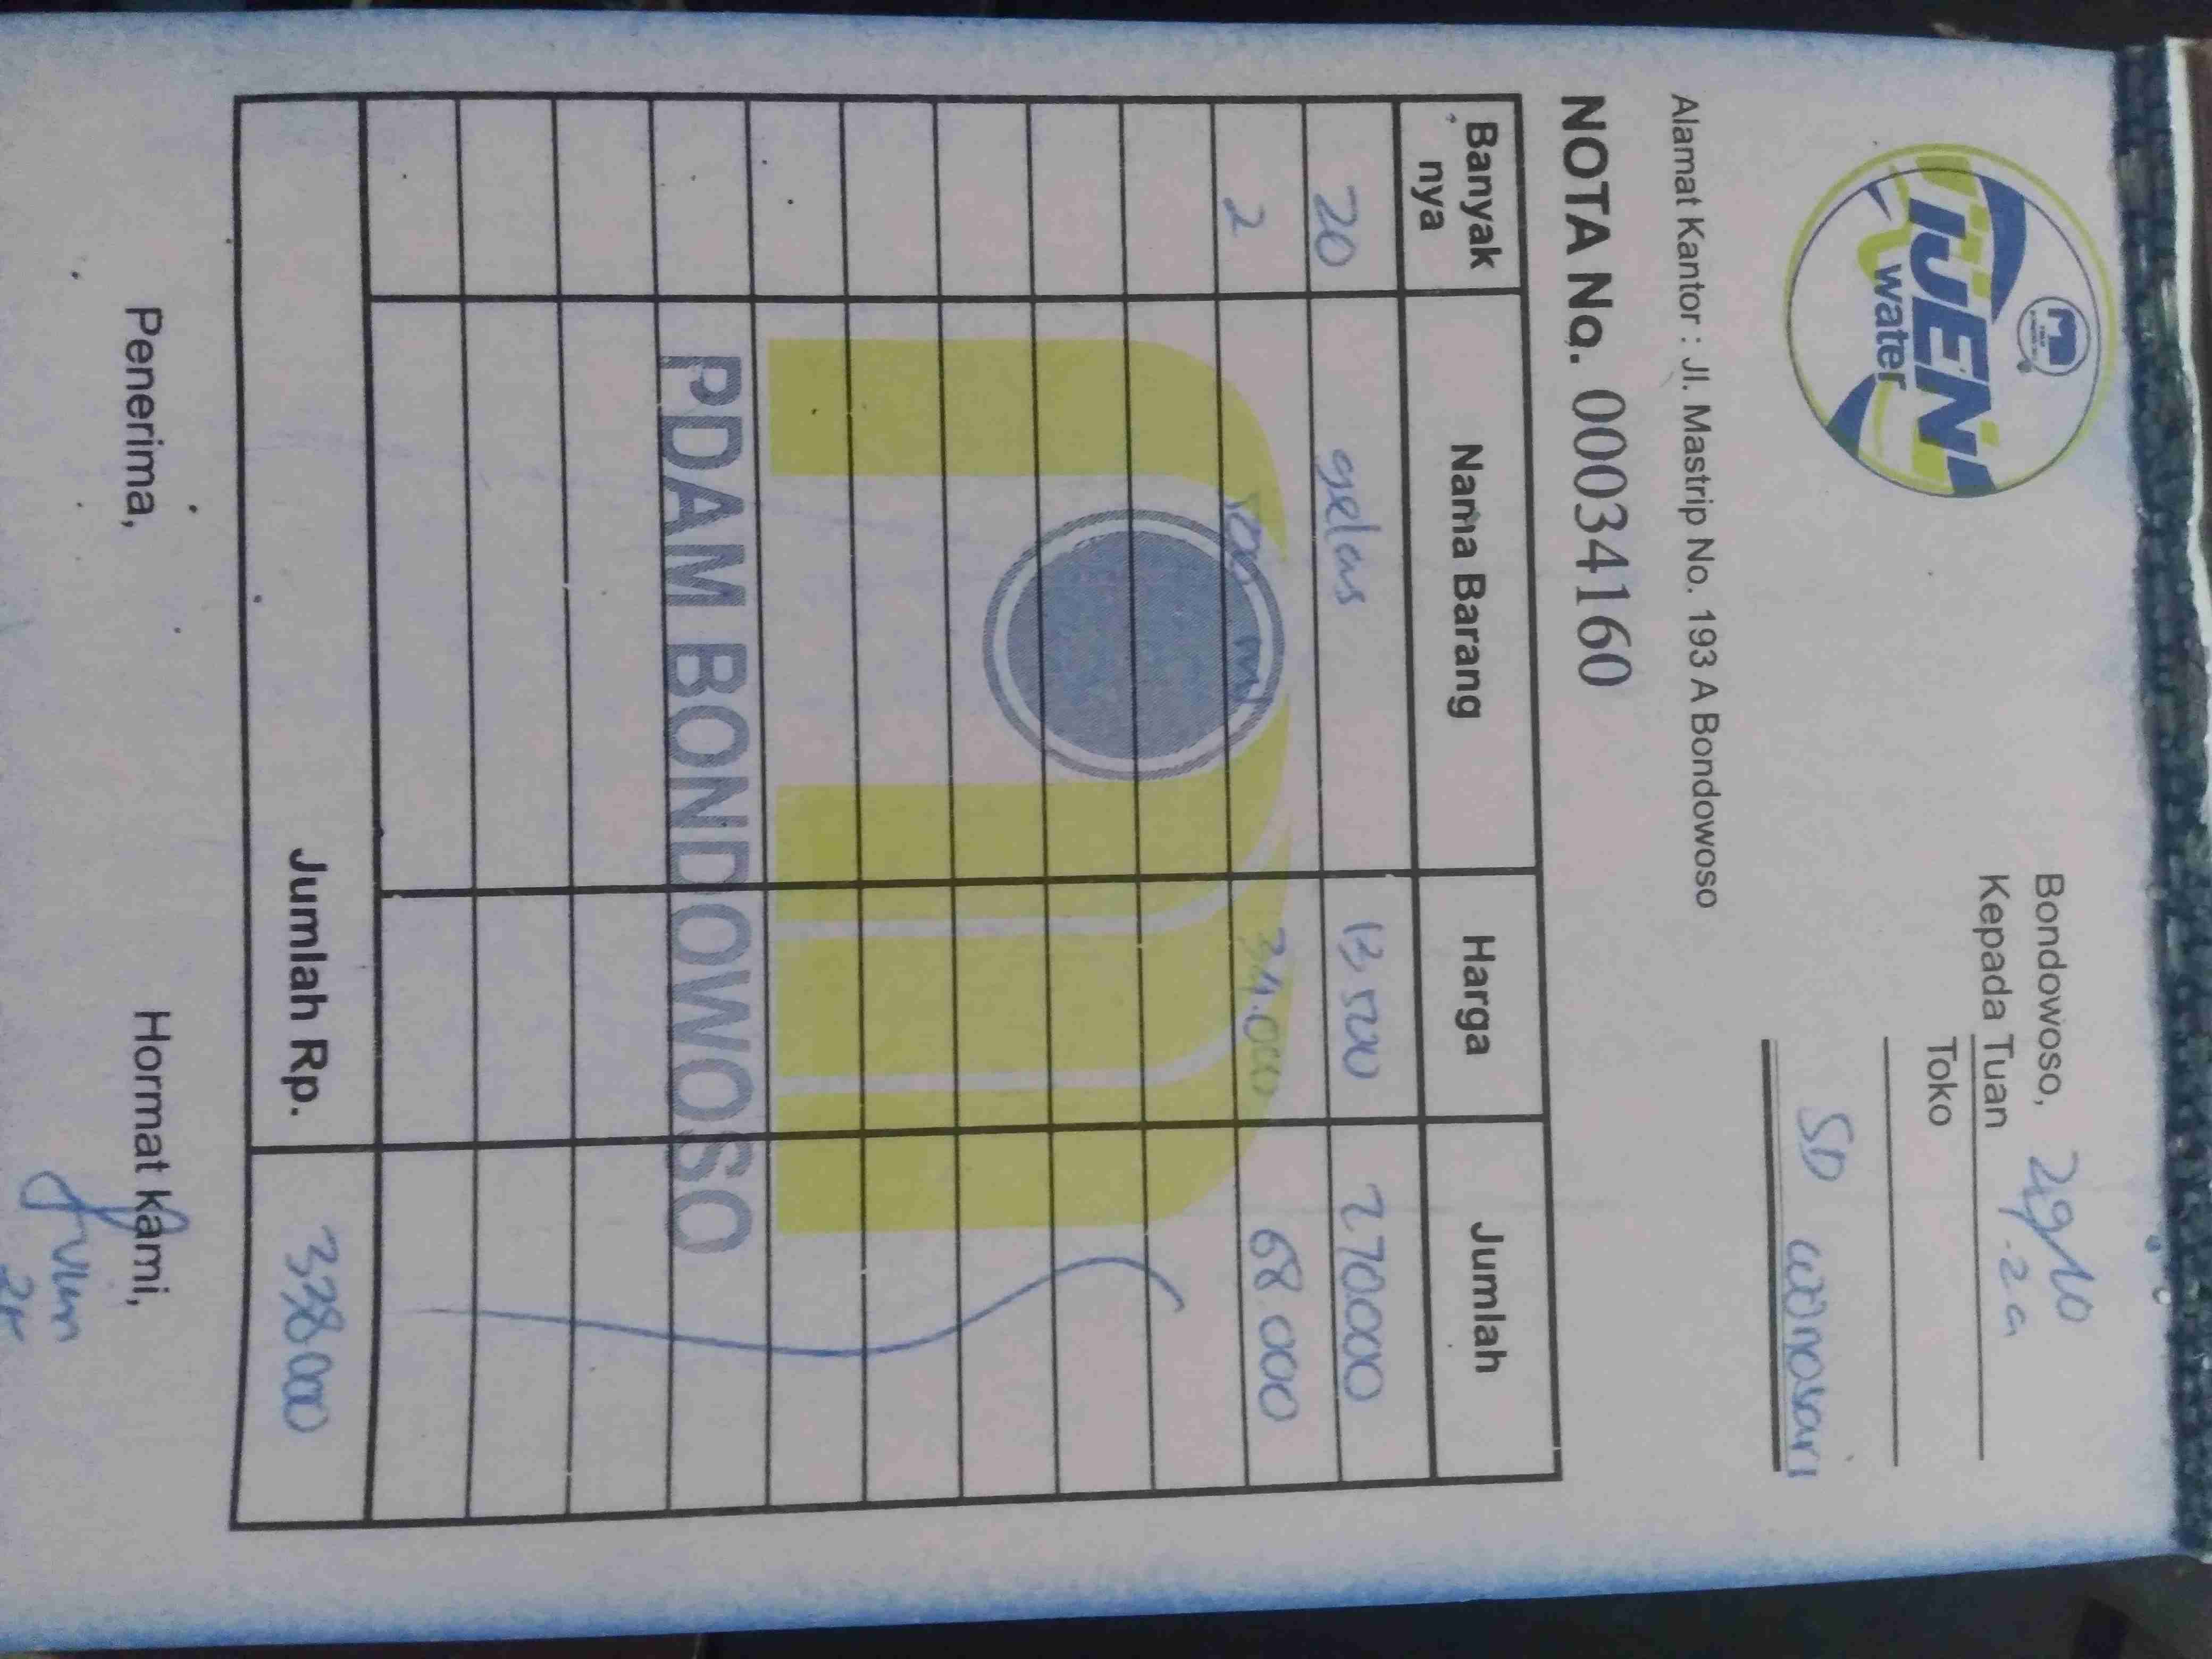 IJEN
water
Bondowoso,
Kepada Tuan
Toko
SD wonosari
Alamat Kantor : Jl. Mastrip No. 193 A Bondowoso
NOTA No. 00034160
Banyak nya Nama Barang Harga Jumlah
20 gelas 13.500 270.000
2 500 ml 34.000 68.000
PDAM BONDOWOSO
Jumlah Rp. 338.000
Penerima, Hormat kami,